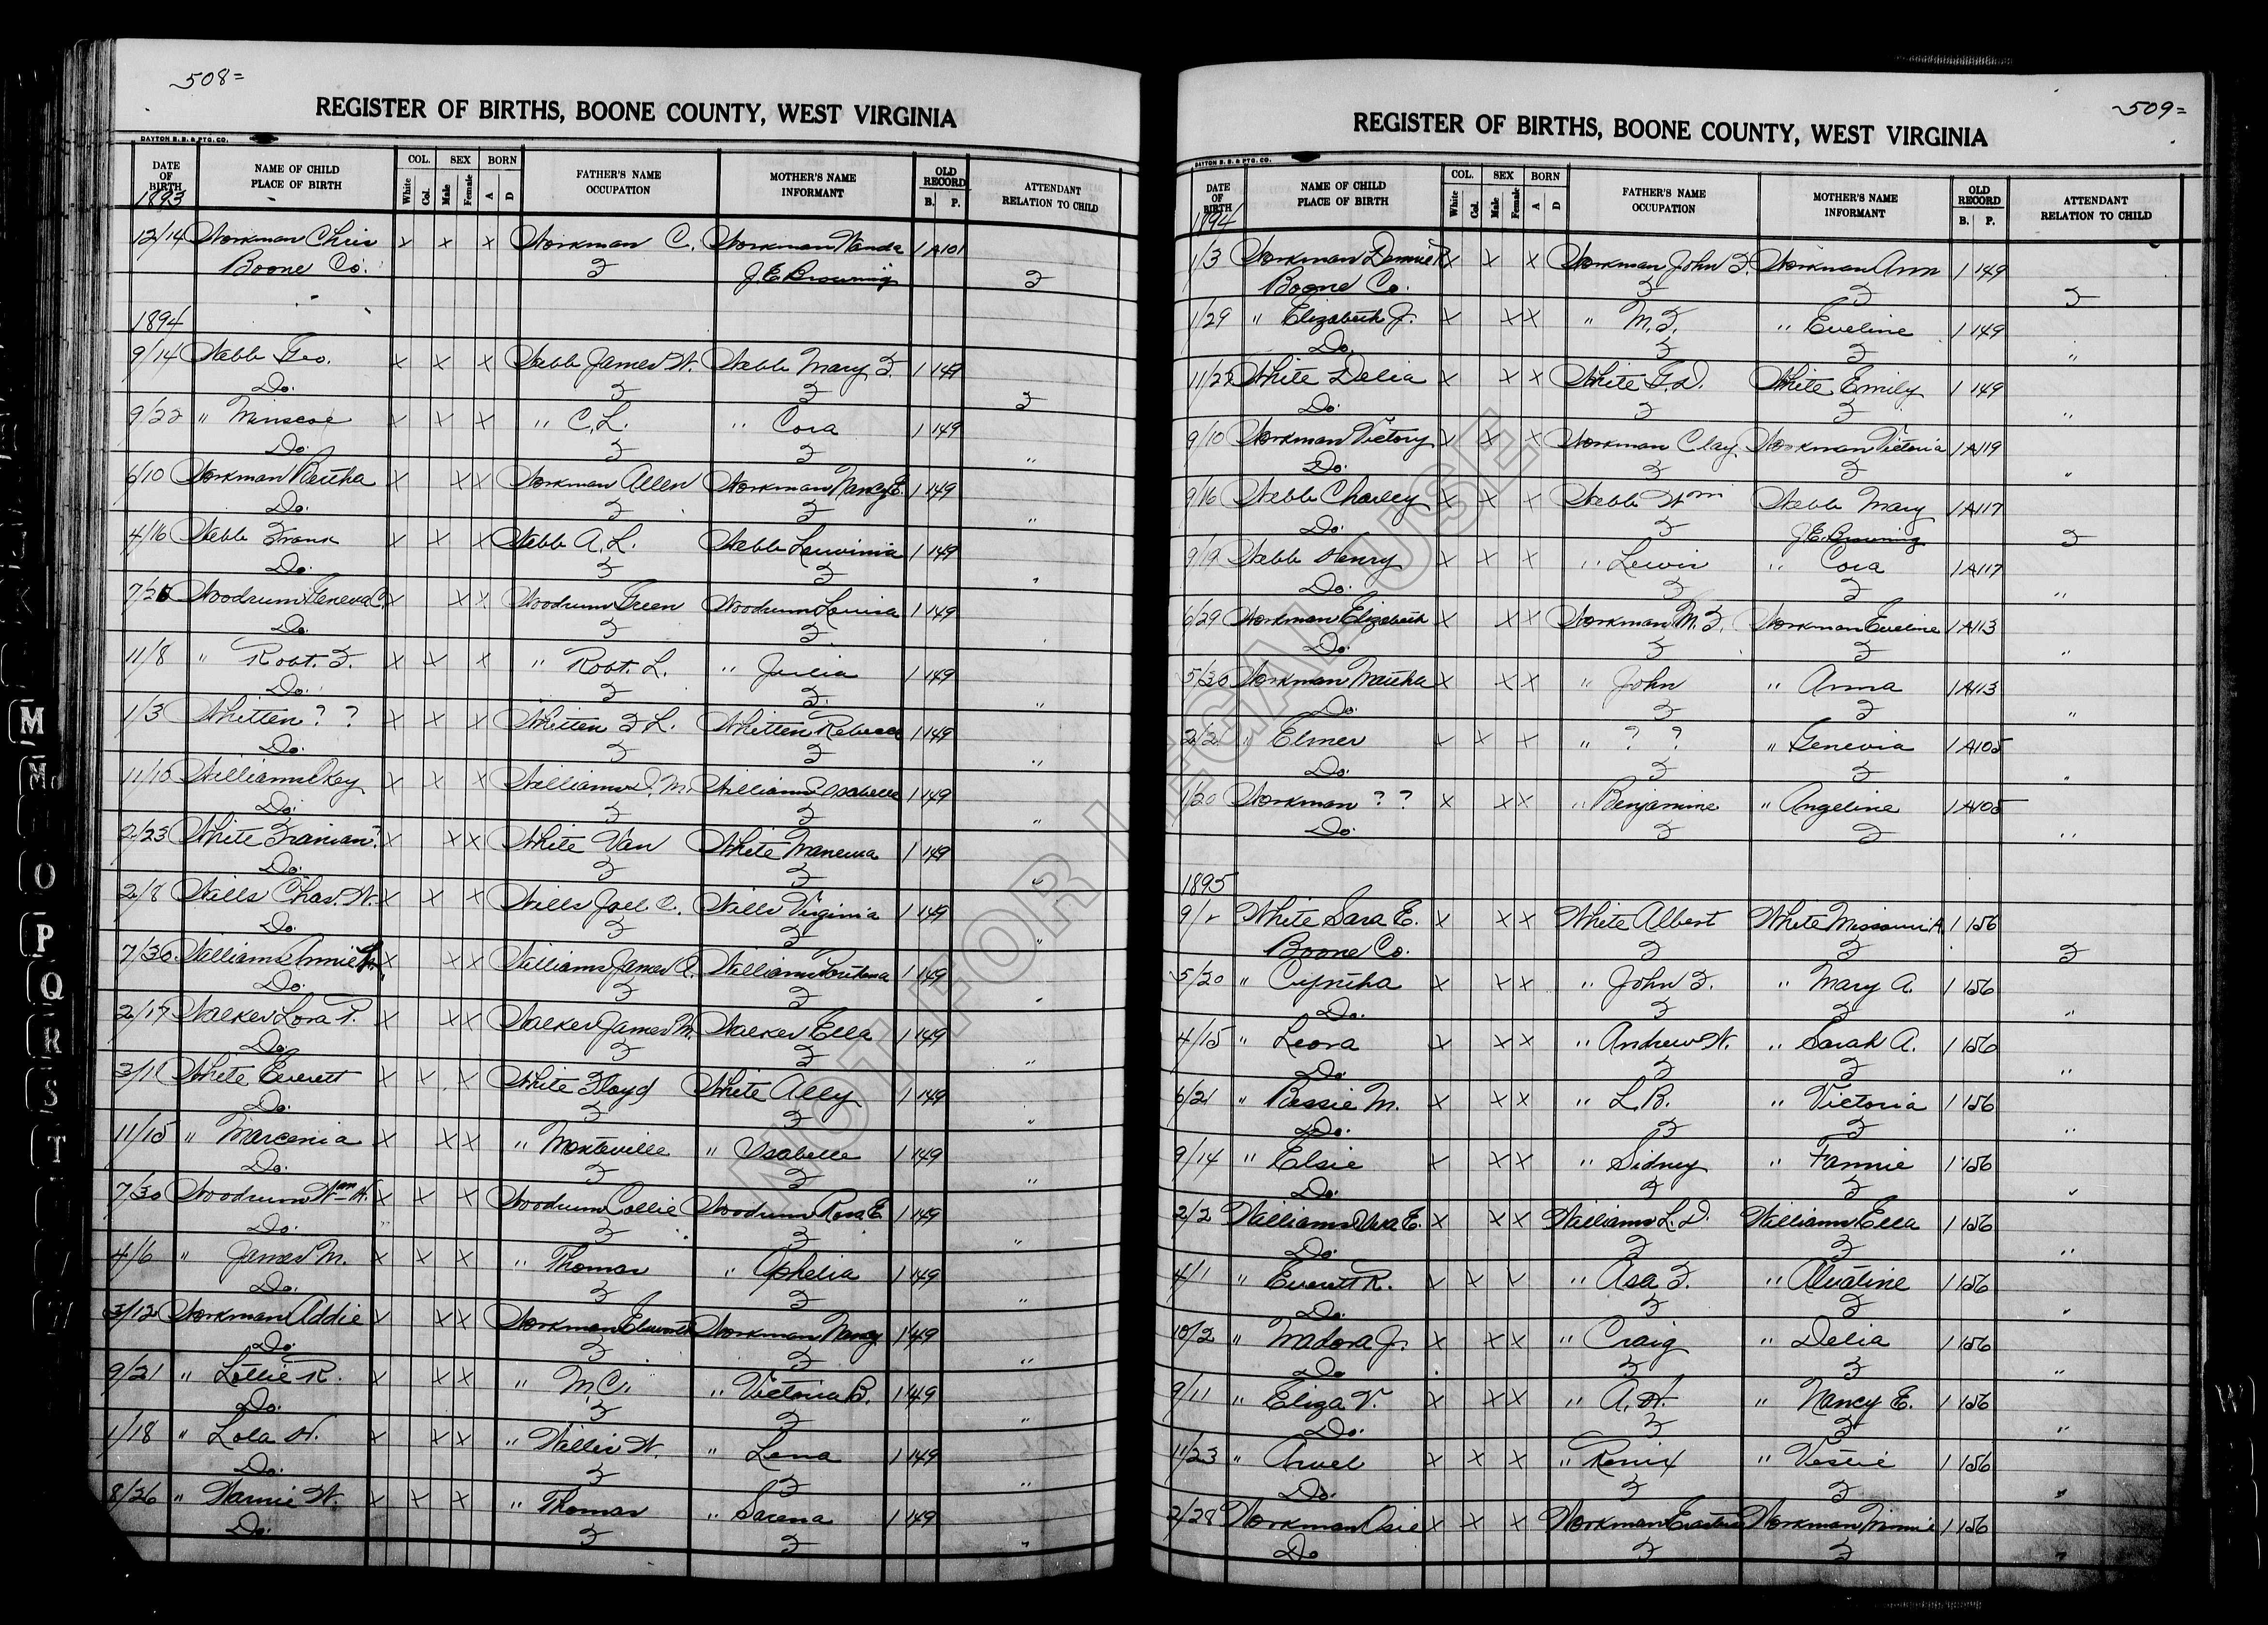 508=
REGISTER OF BIRTHS, BOONE COUNTY, WEST VIRGINIA
DAYTON B. B. & PTG. CO.
DATE OF BIRTH NAME OF CHILD PLACE OF BIRTH COL. White Col. SEX Male Female BORN A D FATHER'S NAME OCCUPATION MOTHER'S NAME INFORMANT OLD RECORD B. P. ATTENDANT RELATION TO CHILD
1893
12/14 Workman Chris x x x Workman C. Workman Wanda 1 A101
Boone Co. ? J.E. Browning ?
1894
9/14 Webb Geo. x x x Webb James W. Webb Mary F. 1 149
Do. ? ? ?
9/22 " x x x " C.L. " Cora 1 149
Do. ? ? "
6/10 Workman Bertha x x x Workman Allen Workman Nancy E. 1 149
Do. ? ? "
4/16 Webb Frank x x x Webb A.L. Webb Louvinia 1 149
Do. ? ? "
7/26 Woodrum Geneva C. x x x Woodrum Green Woodrum Louisa 1 149
Do. ? ? "
11/8 " Robt. F. x x x " Robt. L. " Julia 1 149
Do. ? ? "
1/3 Whitten ? ? x x x Whitten F L. Whitten Rebecca 1 149
Do. ? ? "
11/10 Williams Okey x x x Williams D. M. Williams Isabelle 1 149
Do. ? ? "
2/23 White x x x White Van White 1 149
Do. ? ? "
2/8 Wills Chas. W. x x x Wills Joel C. Wills Virginia 1 149
Do. ? ? "
7/30 Williams Annie x x x Williams James Williams 1 149
Do. ? ? "
2/17 Walker Lora T. x x x Walker James M. Walker Ella 1 149
Do. ? ? "
3/11 White Everett x x x White Floyd White Ally 1 149
Do. ? ? "
11/15 " Marcenia x x x " Monteville " Isabelle 1 149
Do. ? ? "
7/30 Woodrum Wm H. x x x Woodrum Collie Woodrum Rosa E. 1 149
Do. ? ? "
4/6 " James M. x x x " Thomas " Ophelia 1 149
Do. ? ? "
3/12 Workman Addie x x x Workman Workman Nancy 1 149
Do. ? ? "
9/21 " Lottie R. x x x " M.C. " Victoria B. 1 149
Do. ? ? "
1/18 " Lola H. x x x " Willis W. " Lena 1 149
Do. ? ? "
8/26 " Wannie W. x x x " Thomas " Sarena 1 149
Do. ? ? "
509=
REGISTER OF BIRTHS, BOONE COUNTY, WEST VIRGINIA
DAYTON B. B. & PTG. CO.
DATE OF BIRTH NAME OF CHILD PLACE OF BIRTH COL. White Col. SEX Male Female BORN A D FATHER'S NAME OCCUPATION MOTHER'S NAME INFORMANT OLD RECORD B. P. ATTENDANT RELATION TO CHILD
1894
1/3 Workman x x x Workman John F. Workman Ann 1 149
Boone Co. ? ? ?
1/29 " Elizabeth J. x x x " M.F. " Eveline 1 149
Do. ? ? "
11/22 White Delia x x x White G.D. White Emily 1 149
Do. ? ? "
9/10 Workman Victory x x x Workman Clay Workman Victoria 1 A119
Do. ? ? "
9/16 Webb Charley x x x Webb Wm Webb Mary 1 A117
Do. ? J.E. Browning ?
9/19 Webb Henry x x x " Lewis " Cora 1 A117
Do. ? ? "
6/29 Workman Elizabeth x x x Workman M. F. Workman Eveline 1 A113
Do. ? ? "
5/30 Workman Martha x x x " John " Anna 1 A113
Do. ? ? "
2/2 " Elmer x x x " ? ? " Genevia 1 A105
Do. ? ? "
1/20 Workman ? ? x x x " Benjamine " Angeline 1 A105
Do. ? ? "
1895
9/ White Sara E. x x x White Albert White Missouri A. 1 156
Boone Co. ? ? ?
5/20 " Cyntha x x x " John F. " Mary A. 1 156
Do. ? ? "
4/15 " Leora x x x " Andrew W. " Sarah A. 1 156
Do. ? ? "
6/21 " Bessie M. x x x " L.B. " Victoria 1 156
Do. ? ? "
9/14 " Elsie x x x " Sidney " Fannie 1 156
Do. ? ? "
2/2 Williams Ova E. x x x Williams L. D. Williams Ella 1 156
Do. ? ? "
4/1 " Everett R. x x x " Asa F. " Alvatine 1 156
Do. ? ? "
10/2 " Madora J. x x x " Craig " Delia 1 156
Do ? ? "
9/11 " Eliza V. x x x " A. H. " Nancy E. 1 156
Do. ? ? "
11/23 " Arvel x x x " Renix " Vestie 1 156
Do. ? ? "
2/28 Workman Osie x x x Workman Erastus Workman Minnie 1 156
Do ? ? "
M
Mc
O
P
Q
R
S
T
W
W
NOT FOR LEGAL USE